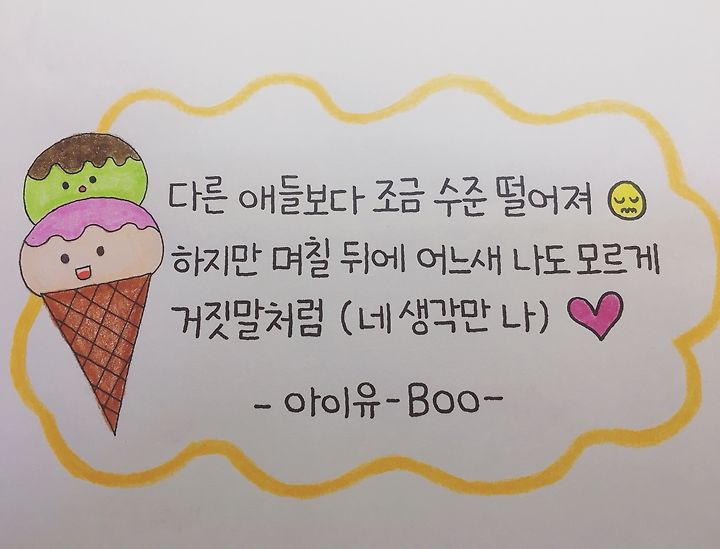 다른 애들보다 조금 수준 떨어져
하지만 며칠 뒤에 어느새 나도 모르게
거짓말처럼 (네 생각만 나)
- 아이유 - Boo -